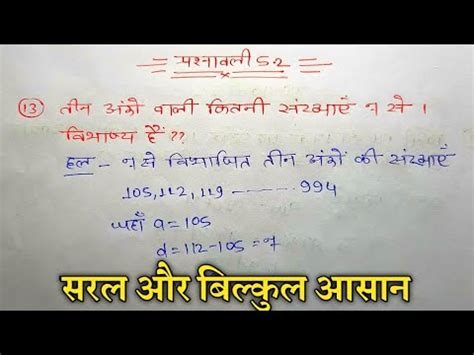 प्रश्नावली 5.2
(13) तीन अंको वाली कितनी संख्याएँ 7 से।
विभाज्य हैं??
हल - 7 से विभाजित तीन अंकों की संख्याएँ
105, 112, 119 ------- 994
यहाँ a = 105
d = 112-105 = 7
सरल और बिल्कुल आसान